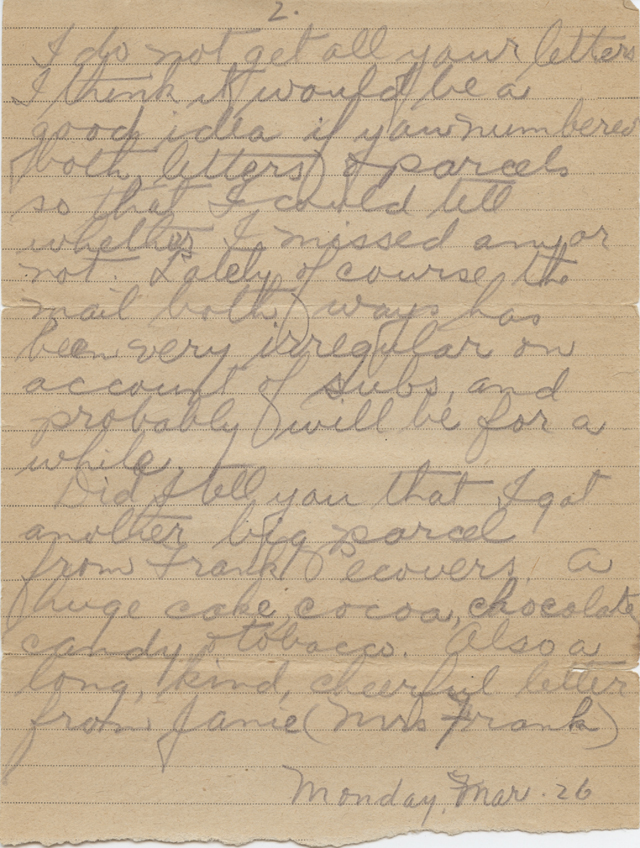 2.
I do not get all your letters
I think it would be a
good idea if you numbered
both letters & parcels
so that I could tell
whether I missed any or
not. Lately of course the
mail both ways has
been very irregular on
account of subs, and
probably will be for a
while.
Did I tell you that I got
another big parcel
from Frank Pecovers. A
huge cake, cocoa, chocolate
candy & tobacco. Also a
long, kind, cheerful letter
from Janie (Mrs Frank)
Monday, Mar. 26